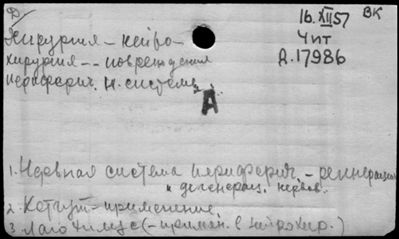 Ф
16.XII57 ВК
Хирургия – нейро-
Чит
хирургия -- повреждения
Д.17986
периферич. н. системы
А
1. Нервная система периферич. – регенерация
и дегенерац. нервов.
2. Кетгут – применение.
3.
(– примен. в нейрохир.)